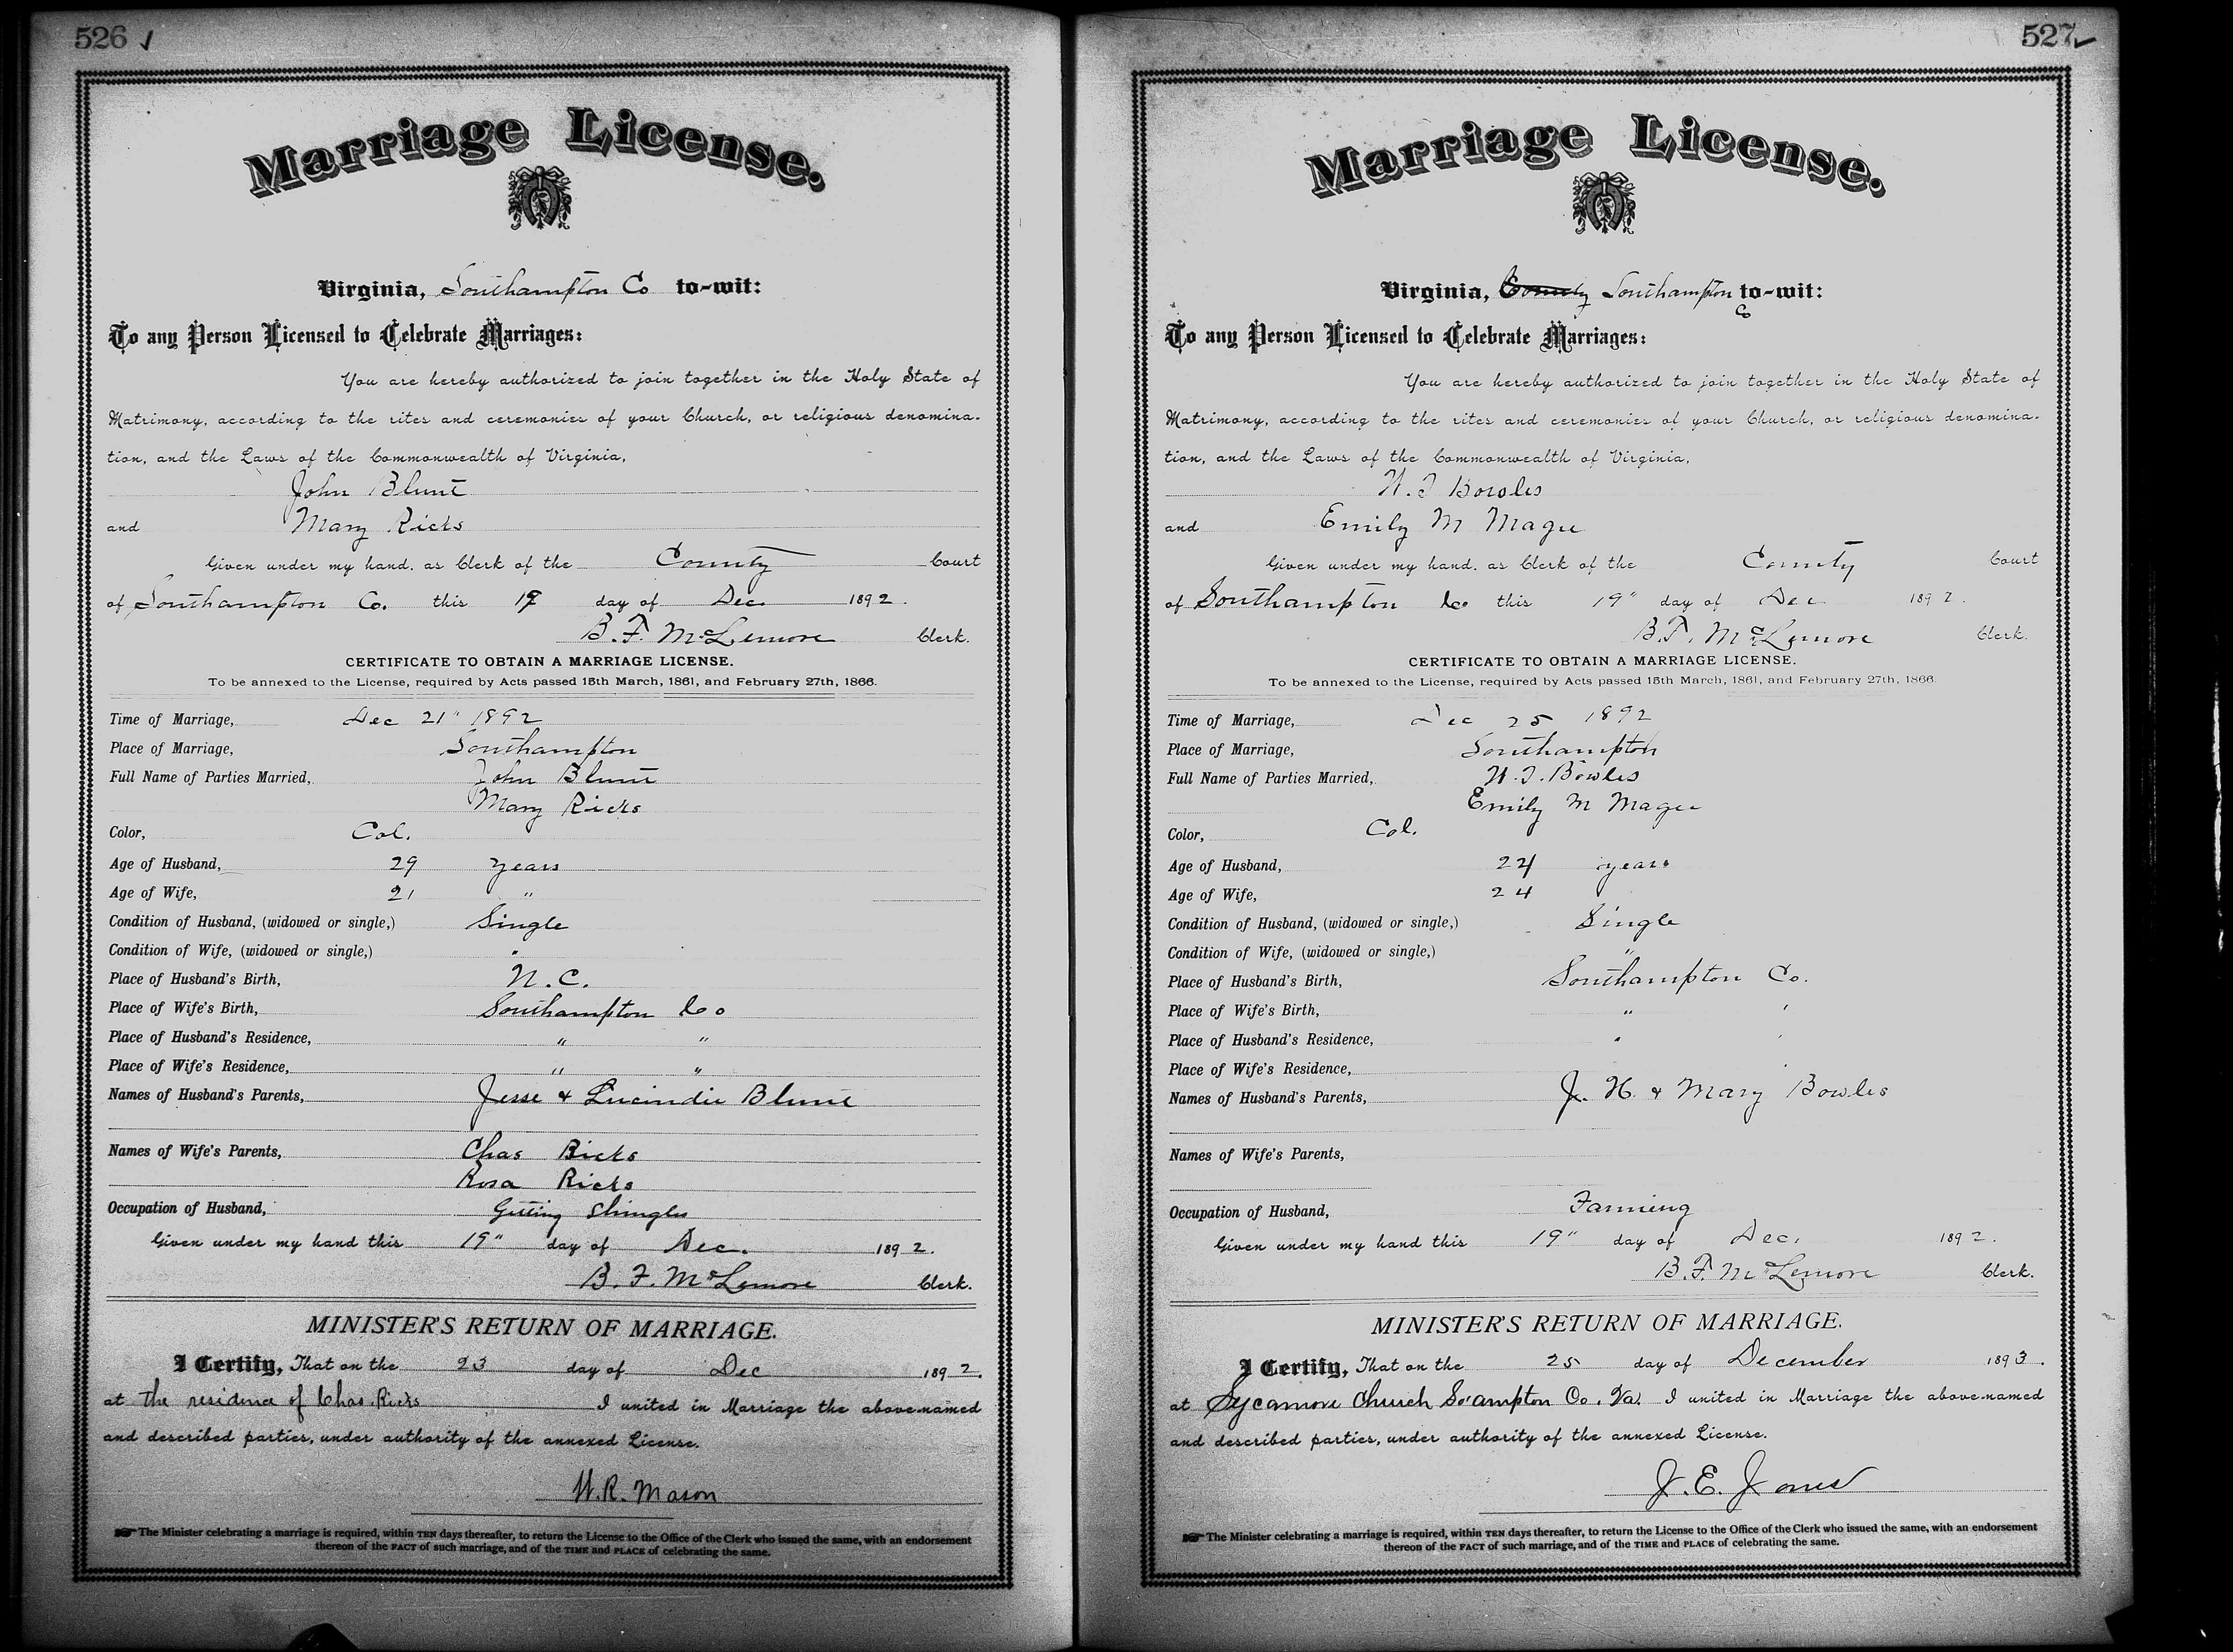 526 ✓
Marriage License.
Virginia, Southampton Co to-wit:
To any Person Licensed to Celebrate Marriages:
You are hereby authorized to join together in the Holy State of
Matrimony, according to the rites and ceremonies of your Church, or religious denomina-
tion, and the Laws of the Commonwealth of Virginia,
John Blunt
and Mary Ricks
Given under my hand, as Clerk of the County Court
of Southampton Co. this 19 day of Dec. 1892.
B. F. McLemore Clerk.
CERTIFICATE TO OBTAIN A MARRIAGE LICENSE.
To be annexed to the License, required by Acts passed 15th March, 1861, and February 27th, 1866.
Time of Marriage, Dec 21" 1892
Place of Marriage, Southampton
Full Name of Parties Married, John Blunt
Mary Ricks
Color, Col.
Age of Husband, 29 years
Age of Wife, 21 "
Condition of Husband, (widowed or single,) Single
Condition of Wife, (widowed or single,) "
Place of Husband's Birth, N.C.
Place of Wife's Birth, Southampton Co
Place of Husband's Residence, " "
Place of Wife's Residence, " "
Names of Husband's Parents, Jesse & Lucindie Blunt
Names of Wife's Parents, Chas Ricks
Rosa Ricks
Occupation of Husband, Getting Shingles
Given under my hand this 19" day of Dec. 1892.
B. F. McLemore Clerk.
MINISTER'S RETURN OF MARRIAGE.
I Certify, That on the 23 day of Dec 1892.
at the residence of Chas. Ricks I united in Marriage the above-named
and described parties, under authority of the annexed License.
W. R. Mason
The Minister celebrating a marriage is required, within TEN days thereafter, to return the License to the Office of the Clerk who issued the same, with an endorsement
thereon of the FACT of such marriage, and of the TIME and PLACE of celebrating the same.
527 ✓
Marriage License.
Virginia, County Southampton Co to-wit:
To any Person Licensed to Celebrate Marriages:
You are hereby authorized to join together in the Holy State of
Matrimony, according to the rites and ceremonies of your Church, or religious denomina-
tion, and the Laws of the Commonwealth of Virginia,
Bowles
and Emily M Magee
Given under my hand, as Clerk of the County Court
of Southampton Co this 19" day of Dec 1892.
B. F. McLemore Clerk.
CERTIFICATE TO OBTAIN A MARRIAGE LICENSE.
To be annexed to the License, required by Acts passed 15th March, 1861, and February 27th, 1866.
Time of Marriage, Dec 25 1892
Place of Marriage, Southampton
Full Name of Parties Married, Bowles
Emily M Magee
Color, Col.
Age of Husband, 24 years
Age of Wife, 24
Condition of Husband, (widowed or single,) Single
Condition of Wife, (widowed or single,) "
Place of Husband's Birth, Southampton Co.
Place of Wife's Birth, " "
Place of Husband's Residence, " "
Place of Wife's Residence,
Names of Husband's Parents, J. H. & Mary Bowles
Names of Wife's Parents,
Occupation of Husband, Farming
Given under my hand this 19" day of Dec. 1892.
B. F. McLemore Clerk.
MINISTER'S RETURN OF MARRIAGE.
I Certify, That on the 25 day of December 1893.
at Sycamore Church So'ampton Co. Va. I united in Marriage the above-named
and described parties, under authority of the annexed License.
J. E. Jones
The Minister celebrating a marriage is required, within TEN days thereafter, to return the License to the Office of the Clerk who issued the same, with an endorsement
thereon of the FACT of such marriage, and of the TIME and PLACE of celebrating the same.